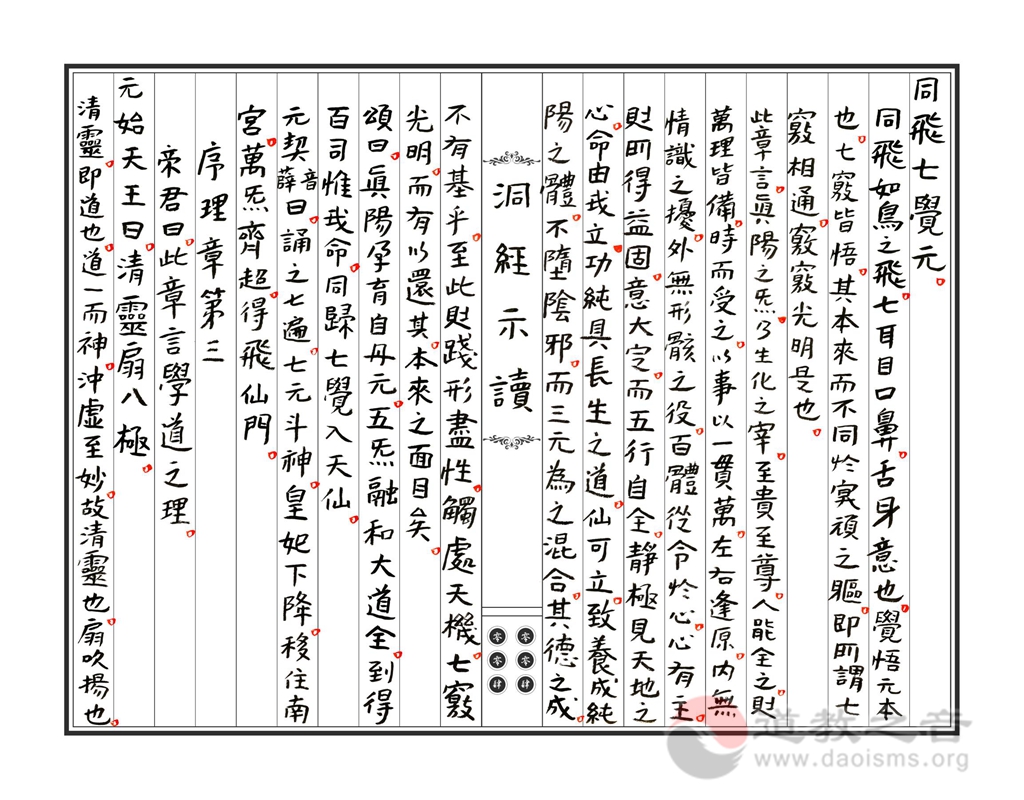 同飛七覺元
同飛如鳥之飛七耳目口鼻舌身意也覺悟元本
也七竅皆悟其本來而不同於冥頑之軀即所謂七
竅相通竅竅光明是也
此章言眞陽之炁乃生化之宰至貴至尊人能全之則
萬理皆備時而受之以事以一貫萬左右逢原内無
情識之擾外無形骸之役百體從令於心心有主
則所得益固意大定而五行自全靜極見天地之
心命由我立功純具長生之道仙可立致養成純
陽之體不墮陰邪而三元為之混合其德之成
洞經示讀
零零
零零
肆肆
不有基乎至此則踐形盡性觸處天機七竅
光明而有以還其本來之面目矣
頌曰眞陽孕育自丹元五炁融和大道全到得
百司惟我命同歸七覺入天仙
元契音薛曰誦之七遍七元斗神皇妃下降移住南
宮萬炁齊超得飛仙門
序理章第三
帝君曰此章言學道之理
元始天王曰清靈扇八極
清靈即道也道一而神沖虛至妙故清靈也扇吹揚也
道教之音
www.daoisms.org